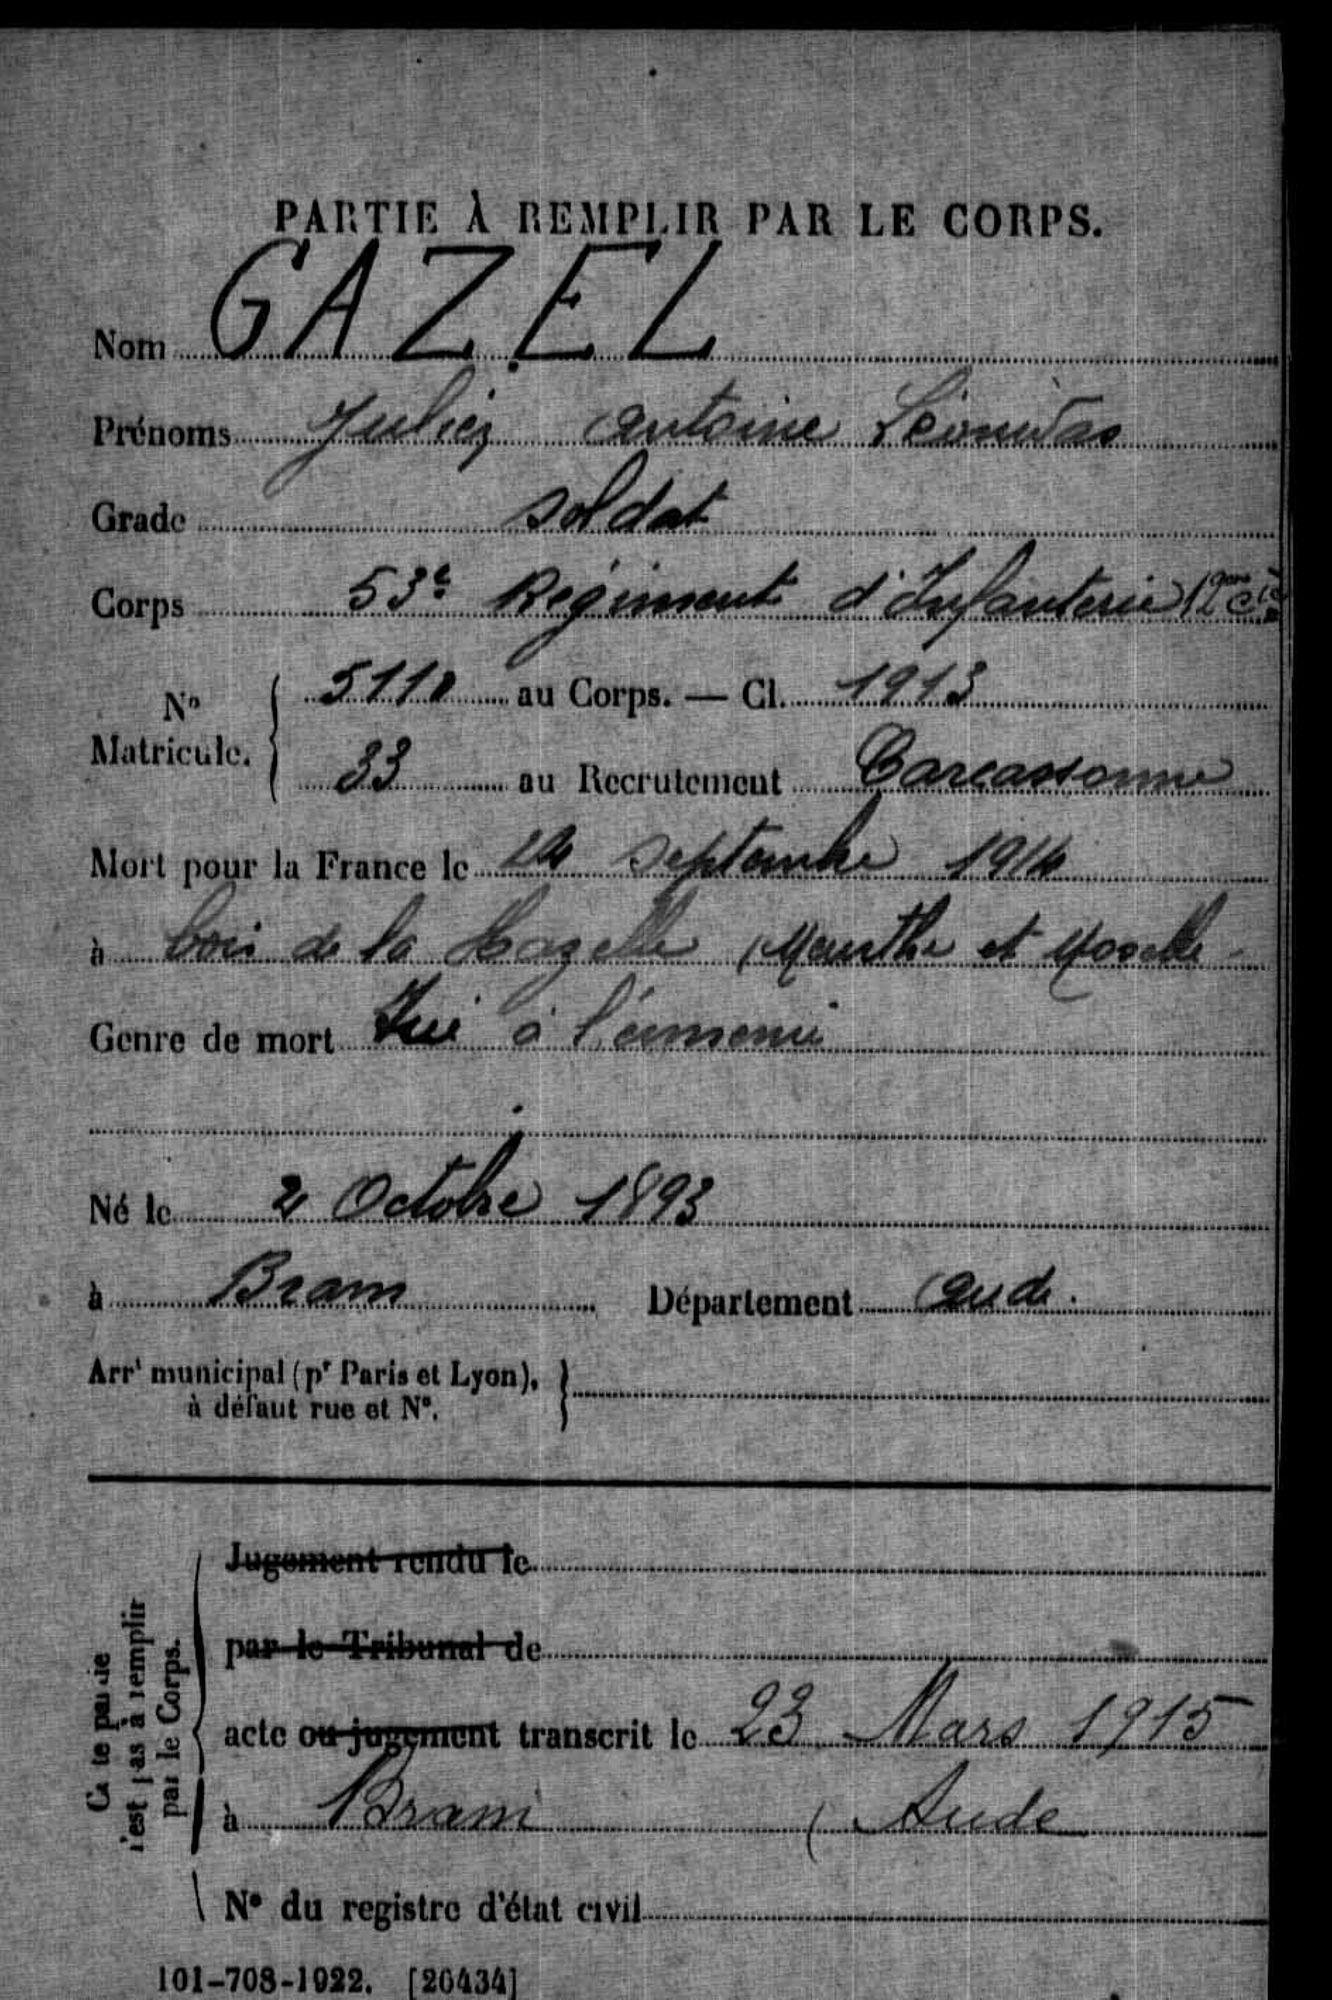 PARTIE À REMPLIR PAR LE CORPS.
Nom GAZEL
Prénoms Julien Antoine Léonidas
Grade Soldat
Corps 53e Régiment d'Infanterie
No Matricule. { 5118 au Corps. — Cl. 1913
33 au Recrutement Carcassonne
Mort pour la France le 24 septembre 1914
à bois de la Hazelle (Meurthe et Moselle
Genre de mort Tué à l'ennemi
Né le 2 Octobre 1893
à Bram Département Aude.
Arrt municipal (pr Paris et Lyon),
à défaut rue et No.
Jugement rendu le
par le Tribunal de
acte ou jugement transcrit le 23 Mars 1915
à Bram (Aude
No du registre d'état civil
Cette partie
n'est pas à remplir
par le Corps.
101-708-1922. [26434]